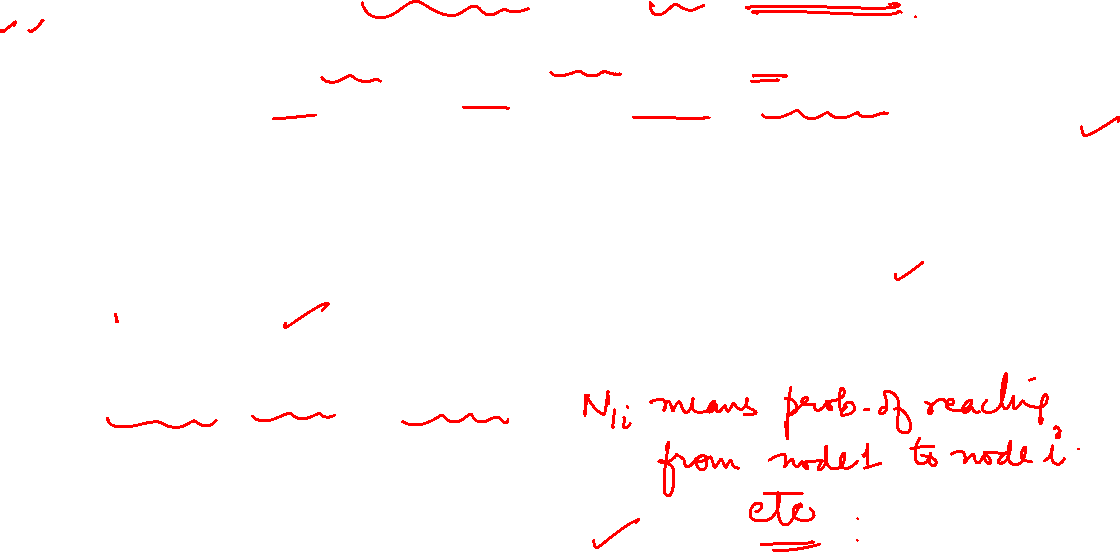 N1i means prob. of reaching
from node 1 to node i.
etc